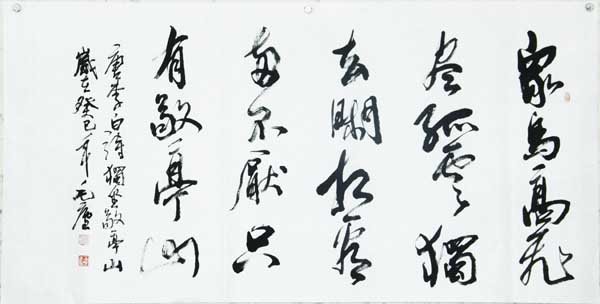 眾鳥高飛
尽孤雲獨
去閒相看
兩不厭只
有敬亭山
唐李白詩獨坐敬亭山
歲在癸巳年